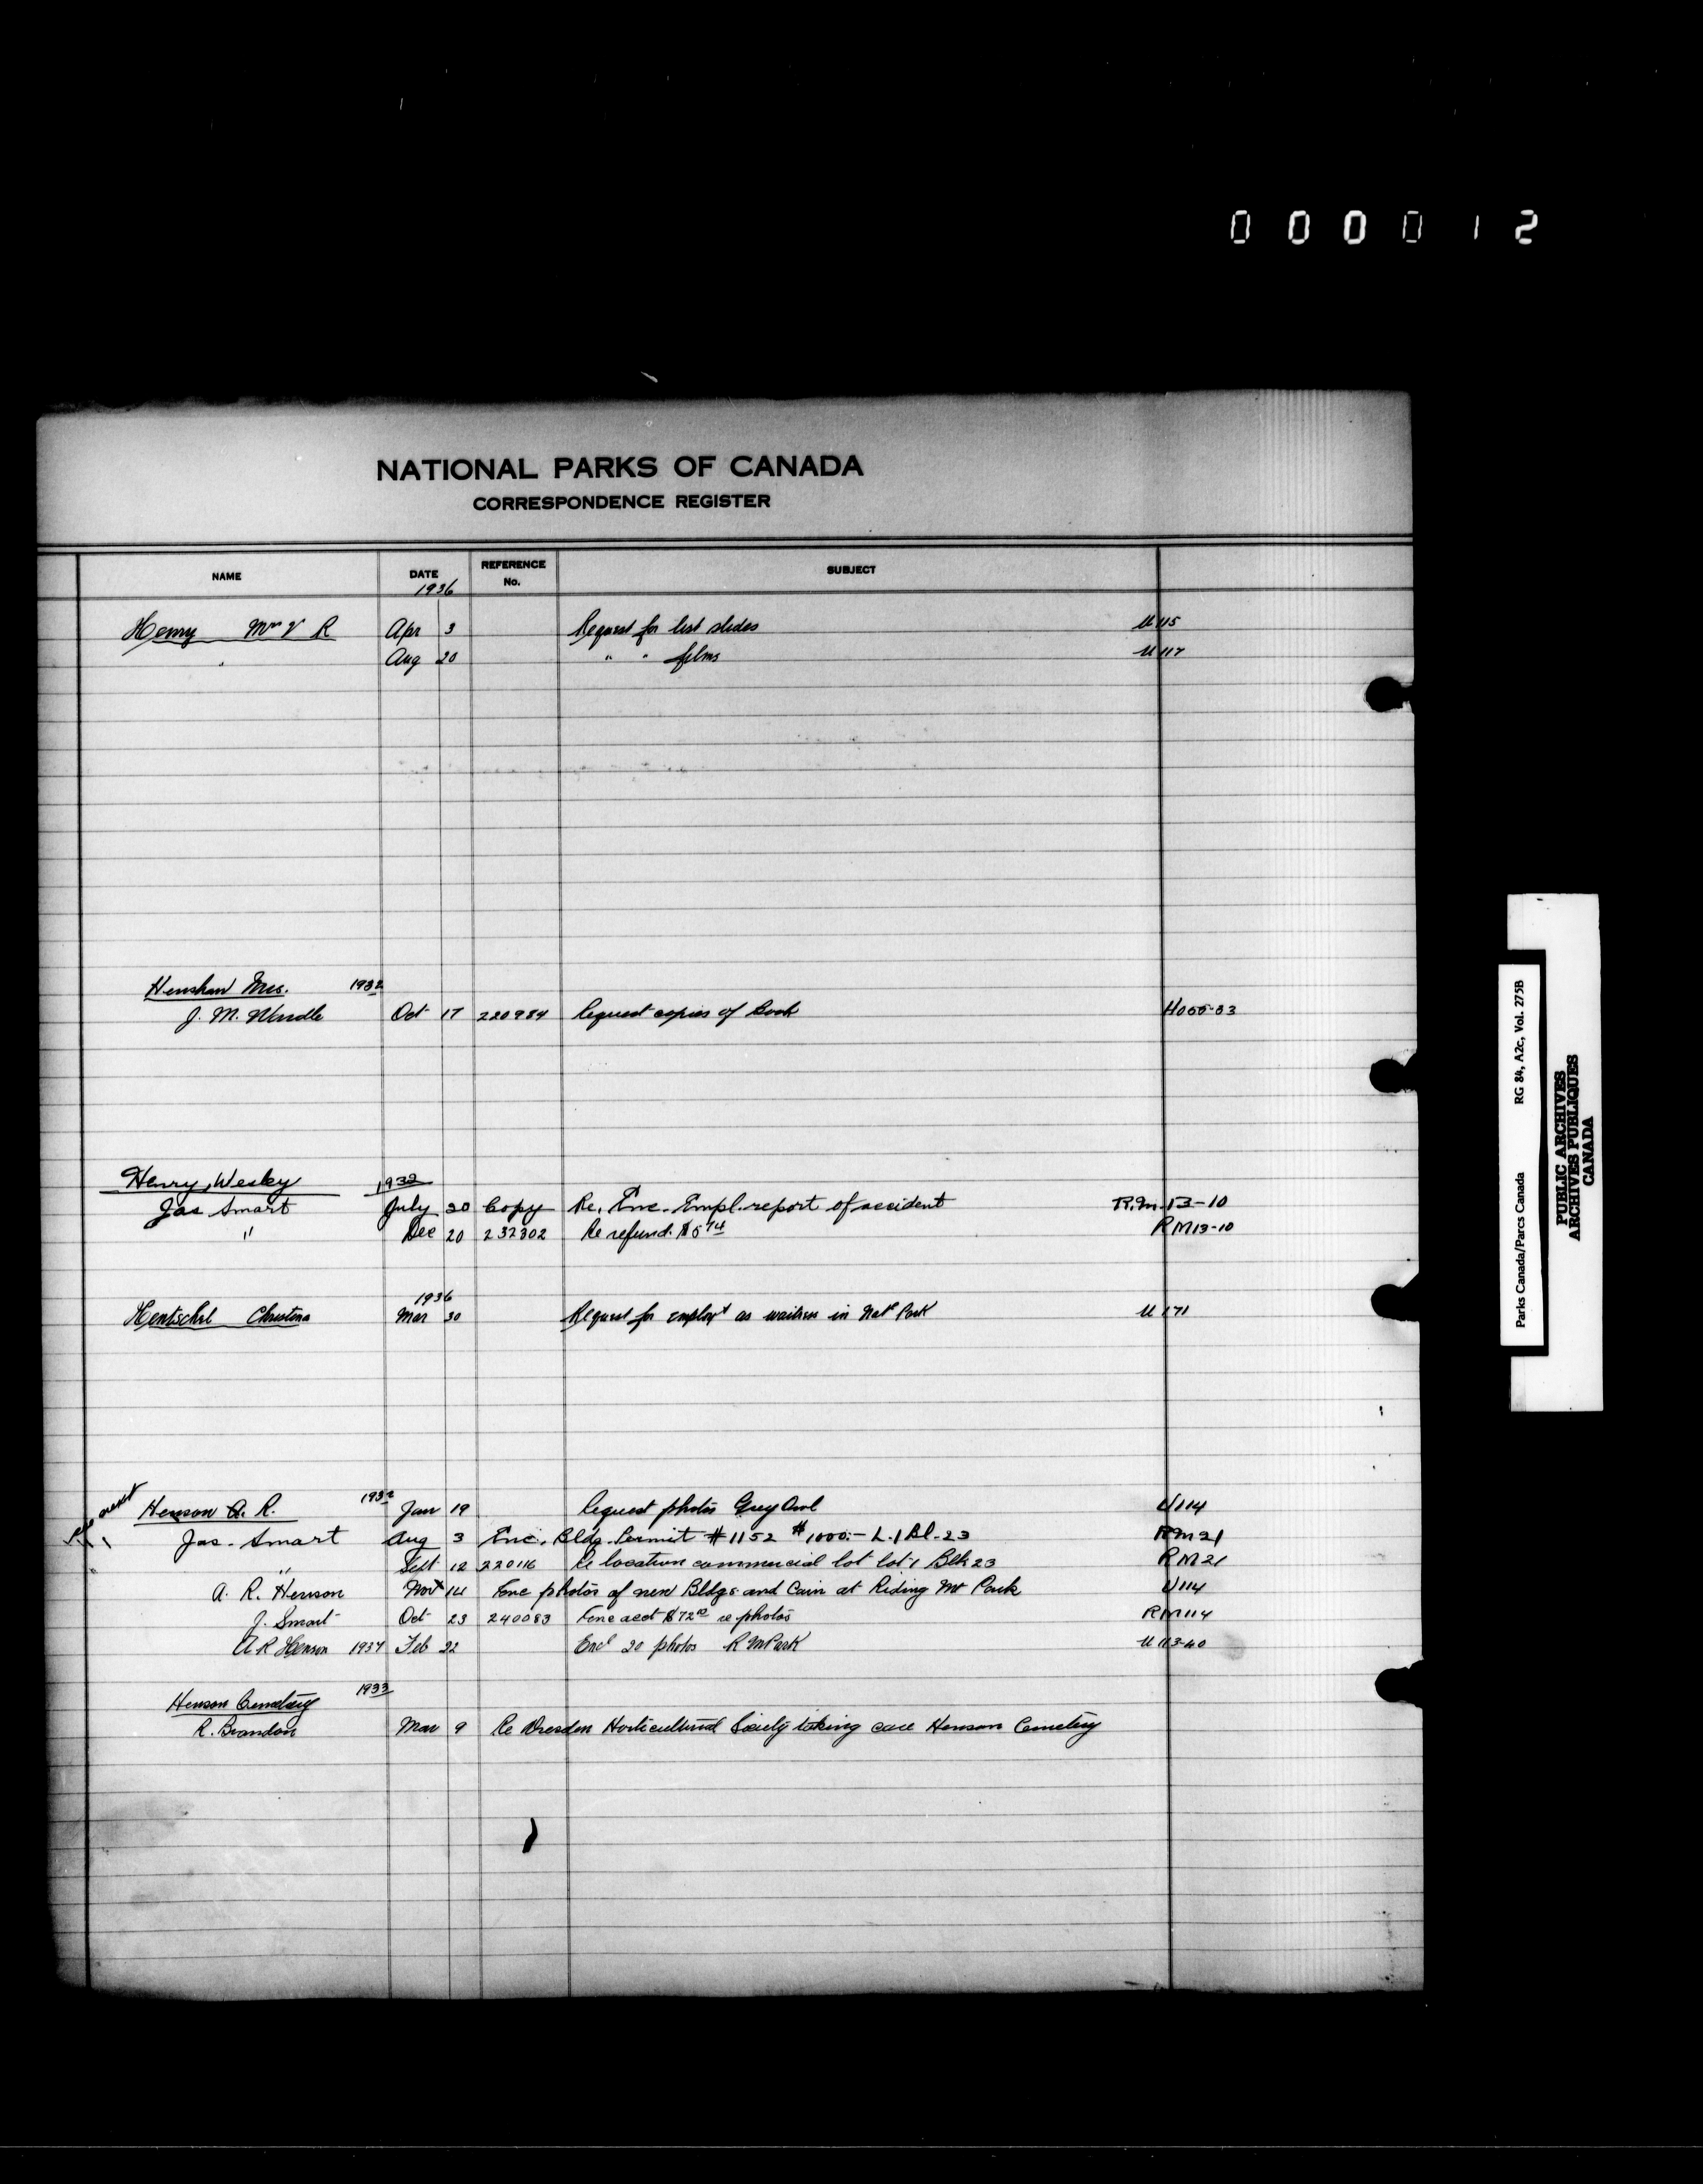 000012
NATIONAL PARKS OF CANADA
CORRESPONDENCE REGISTER
NAME DATE REFERENCE No. SUBJECT
1936
Henry Mrs V R Apr 3 Request for list slides U 115
" Aug 20 " " films U 117
Henshaw Mrs. 1932
J. M. Wardle Oct 17 220984 Request copies of Book H055-33
Henry, Wesley 1932
Jas Smart July 30 Copy Re. Enc. Empl. report of accident R.M. 13-10
" Dec 20 232302 Re refund $5 14 RM13-10
1936
Hentschel Christina Mar 30 Request for employt as waitress in Natl Park U 171
See next
Henson A. R. 1932 Jan 19 Request photos Grey Owl U114
Jas. Smart Aug 3 Enc. Bldg. Permit #1152 $1000.- L.1 Bl.23 RM21
" Sept 12 220116 Re location commercial lot lot 1 Blk 23 RM21
A. R. Henson Nov 14 Enc photos of new Bldgs and Cairn at Riding Mt Park U114
J. Smart Oct 23 240083 Enc acct $72 re photos RM114
A R Henson 1937 Feb 22 Encl 20 photos R M Park U 113-40
Henson Cemetery 1933
R. Brandon Mar 9 Re Dresden Horticultural Society taking care Henson Cemetery
Parks Canada/Parcs Canada RG 84, A2c, Vol. 275B
PUBLIC ARCHIVES
ARCHIVES PUBLIQUES
CANADA